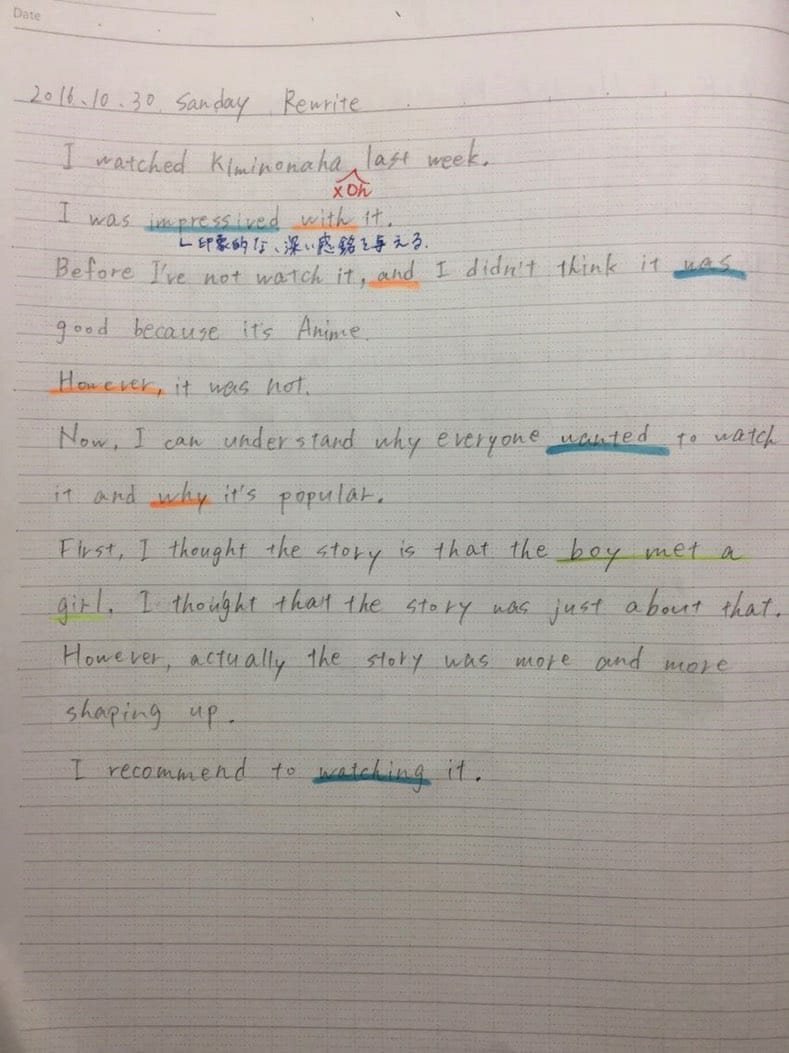 Date
2016.10.30 Sanday Rewrite
I watched Kiminonaha last week.
xOh
I was impressived with it.
印象的な、深い感銘を与える.
Before I've not watch it, and I didn't think it was
good because it's Anime.
However, it was not.
Now, I can understand why everyone wanted to watch
it and why it's popular.
First, I thought the story is that the boy met a
girl. I thought that the story was just about that.
However, actually the story was more and more
shaping up.
I recommend to watching it.